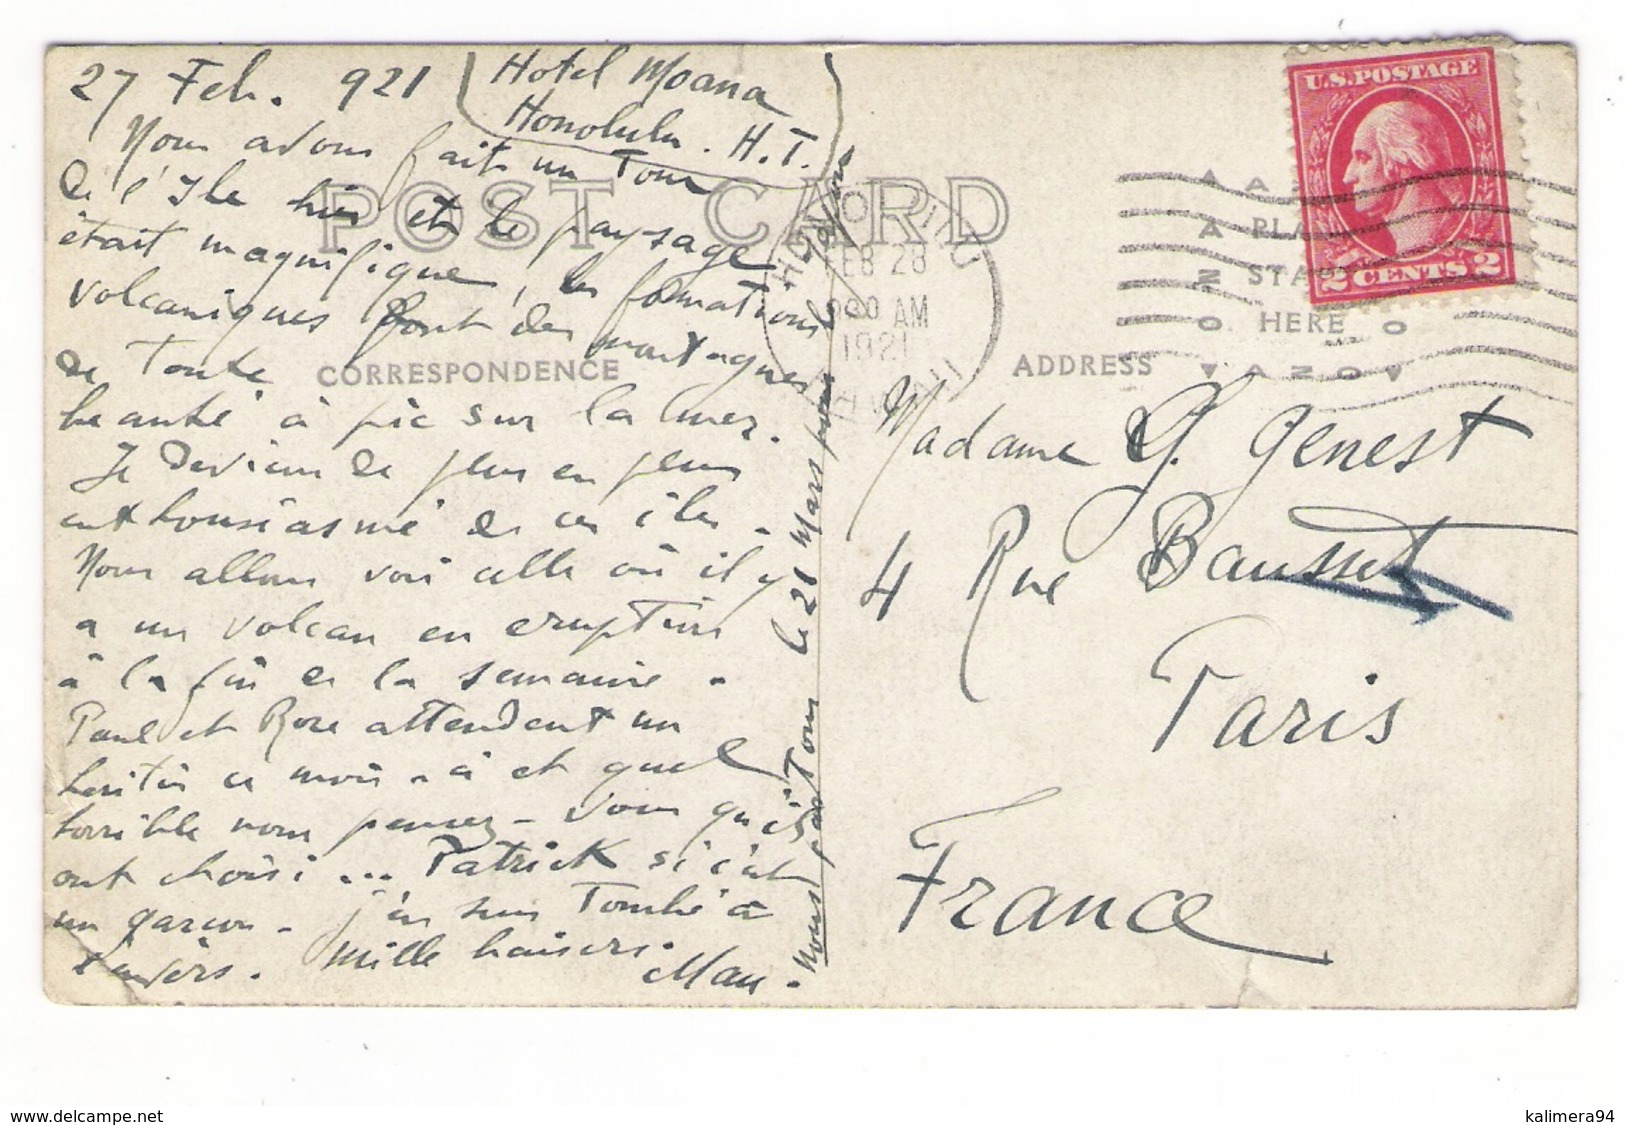 27 Feb. 921
Hotel Moana
Honolulu. H.T.
Nous avons fait un Tour
de l'Ile hier et le paysage
était magnifique, les formations
volcaniques font des montagnes
de Toute
beauté à pic sur la mer.
Je deviens de plus en plus
enthousiasmé de ces îles.
Nous allons voir celle où il y
a un volcan en eruption
à la fin de la semaine.
Paul et Rose attendent un
ce mois-ci et quel
horrible nom pensez-vous qu'ils
ont choisi ... Patrick si c'est
un garçon - j'en suis Tombé à
l'envers. Mille baisers. Man.
Nous partons le 21 Mars pour le Japon
POST CARD
CORRESPONDENCE
ADDRESS
HONOLULU
FEB 28
AM
1921
HAWAII
PLA
STA
HERE
U.S. POSTAGE
2 CENTS 2
Madame G. Genest
4 Rue Bausset
Paris
France
www.delcampe.net
kalimera94